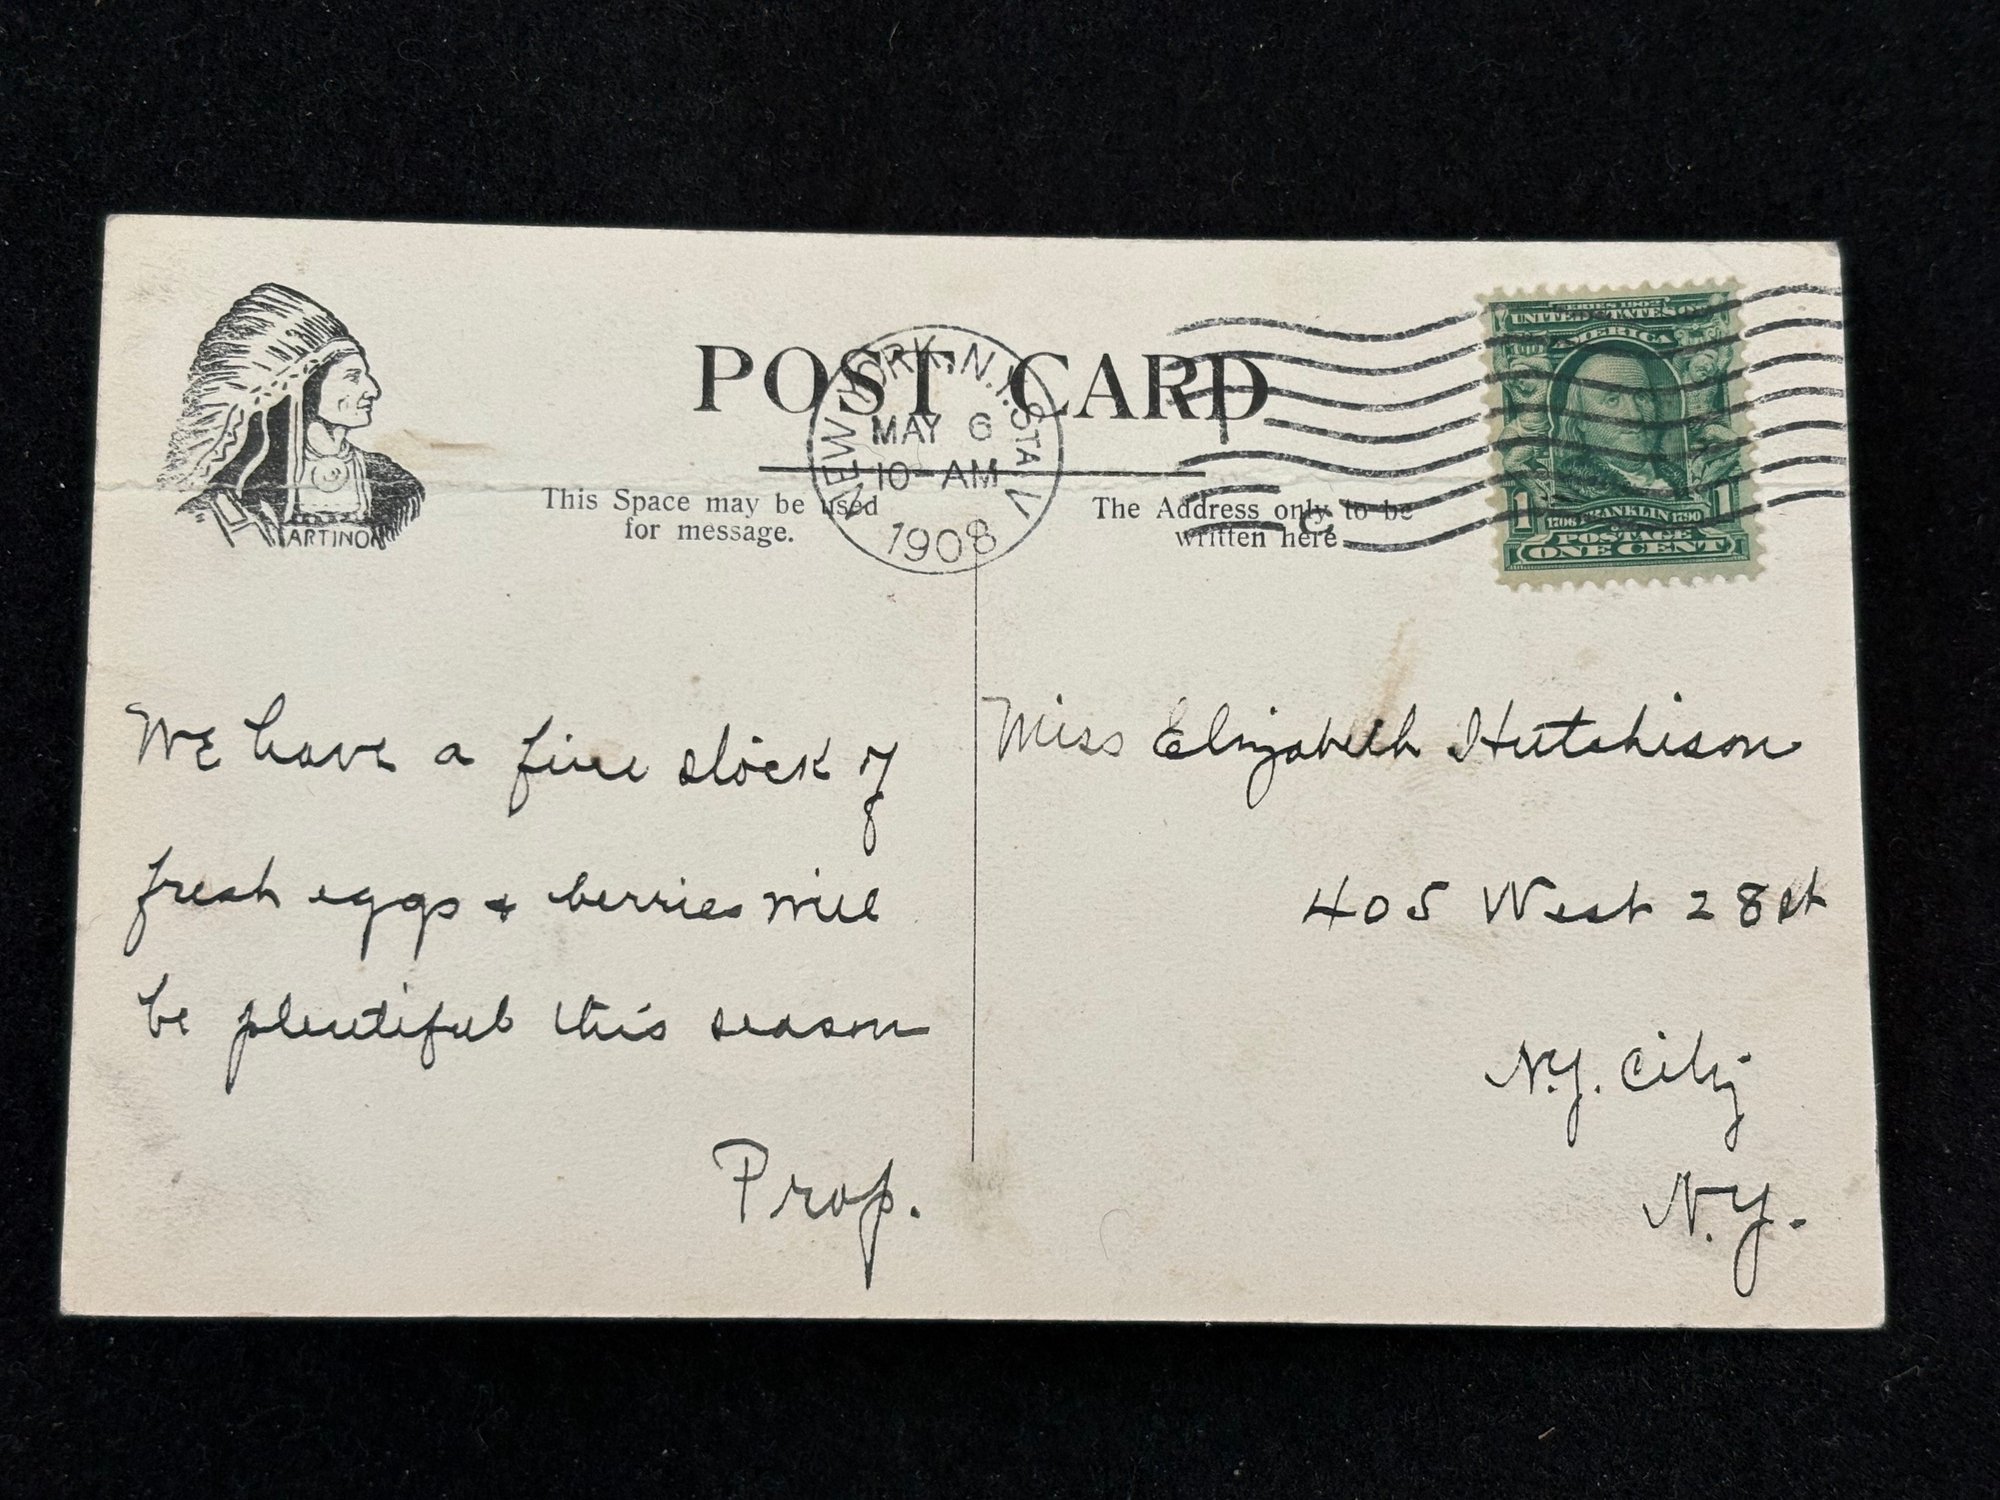 POST CARD
NEW YORK, N.Y. STA. V
MAY 6
10-AM
1908
SERIES 1902
UNITED STATES OF
AMERICA
1 1
1706 FRANKLIN 1790
POSTAGE
ONE CENT
ARTINO
This Space may be used
for message.
The Address only to be
written here
We have a fine stock of
fresh eggs + berries will
be plentiful this season
Prop.
Miss Elizabeth Hutchison
405 West 28 st
N.Y. City
N.Y.